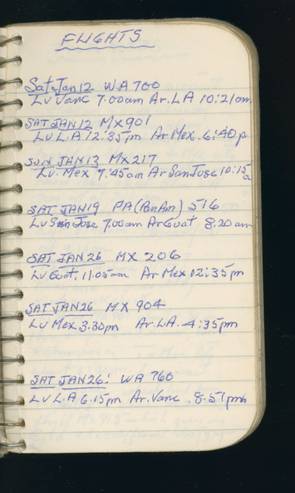 FLIGHTS
Sat. Jan 12 WA 700
Lv Vanc 7.00am Ar. LA 10:21am
SAT JAN 12 MX 901
Lv L.A. 12:35pm Ar Mex. 6:40p
SUN JAN 13 MX 217
Lv. Mex 7:45am Ar San Jose 10:15a
SAT JAN 19 PA (Pan Am) 516
Lv San Jose 7.00am Ar Guat 8.20am
SAT JAN 26 MX 206
Lv Guat. 11.05am Ar Mex 12:35pm
SAT JAN 26 MX 904
Lv Mex 3.30pm Ar LA. 4:35pm
SAT JAN 26: WA 760
Lv L.A 6.15pm Ar. Vanc. 8.57pm